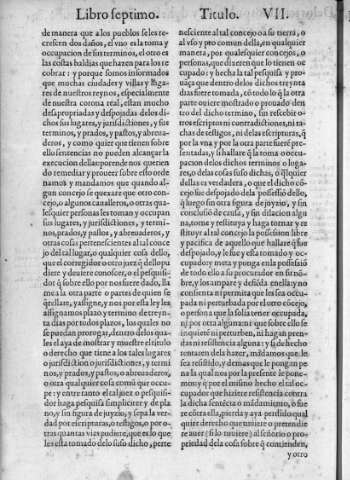 Libro septimo. Titulo. VII.
de manera que a los pueblos se les re-
crescen dos daños, el vno es la toma y
occupacion de sus terminos, el otro es
las costas baldias que hazen para los re
cobrar: y porque somos informados
que muchas ciudades y villas y luga-
res de nuestros reynos, especialmente
de nuestra corona real, estan mucho
desapropriadas y despojadas delos di-
chos sus lugares, y jurisdictiones, y ter
minos, y prados, y pastos, y abreua-
deros, y como quier que tienen sobre
ello sentencias no pueden alcançar la
execucion dellas: porende nos queriendo
remediar y proueer sobre esto orde
namos y mandamos que quando al-
gun concejo se quexare que otro con-
cejo, o algunos caualleros, o otras qua-
lesquier personas les toman y occupan
sus lugares, y jurisdictiones, y termi-
nos, prados, y pastos, y abreuaderos, y
otras cosas pertenescientes al tal conce
jo del tal lugar, o qualquier cosa dello,
que el corregidor o otro juez q̃ dello pu
diere y deuiere conoscer, o el pesquisi-
dor q̃ sobre ello por nos fuere dado, lla
me a la otra parte o partes de quien se
q̃rellan, y assigne, y nos por esta ley les
assignamos plazo y termino de treyn-
ta dias por todos plazos, los quales no
se puedan prorogar, dentro delos qua-
les el aya de mostrar y muestre el titulo
o derecho que tiene a los tales lugares
o jurisdiction o jurisdictiones, y termi
nos, y prados, y pastos, o abreuaderos,
o otra qual quier cosa como que occu-
pe: y entre tanto el juez o pesqui-
dor haga pesquisa simpliciter y de pla-
no, y sin figura de juyzio, y sepa la ver-
dad por escripturas, o testigos, o por o-
tras quantas vias pudiere, que es lo que
les esta tomado delo suso dicho, perte
nesciente al tal concejo o a su tierra, o
al vso y pro comun della, en qualquier
manera, por qualesquier concejos, o
personas, que dizeren que lo tienen oc
cupado: y hecha la tal pesquisa y pro-
uãça que dentro delos dichos treynta
dias fuere tomada, cõ todo lo q̃ la otra
parte ouiere mostrado o prouado den
tro del dicho termino, sin rescebir o-
tros escriptos ni contradictiones, ni ta-
chas de testigos, ni delas escripturas, q̃
por la vna y por la otra parte fuerẽ pre-
sentadas, si hallare q̃ la toma o occu-
pacion delos dichos terminos o luga-
res, o delas cosas suso dichas, o q̃lquier
della es verdadera, o que el dicho cõ-
cejo fue despojado dela possessiõ dello,
q̃ luego sin otra figura de juyzio, y sin
conclusiõ de causa, y sin dilacion algu
na, torne y restituya y haga tornar y re
stituyr al tal concejo la possession libre
y pacifica de aquello que hallare q̃ fue
despojado, y le fue y esta tomado y oc-
cupado: y meta y ponga en la possessiõ
de todo ello a su procurador en su nõ-
bre, y los ampare y defiẽda en ella: y no
consienta ni permita que les sea occu-
pada ni perturbada por el otro cõcejo,
o persona que la solia tener occupada,
ni por otra alguna: e que sobre ello se
inquietẽ ni perturben, ni hagan pren-
das ni resistencia alguna: y si de hecho
tentaren dela hazer, mãdamos que le
sea resistido, y demas que le pongan pe
na la qual nos por la presente le pone-
mos: y q̃ por el mismo hecho el tal oc-
cupador que hiziere resistencia contra
la dicha sentẽcia o mãdamiento, o fue
re cõtra ella, pierda y aya perdido qual
quier derecho que tuuiere o pretendie
re auer (si lo tuuiere) al señorio o pro-
priedad dela cosa sobre q̃ contienden,
y otro